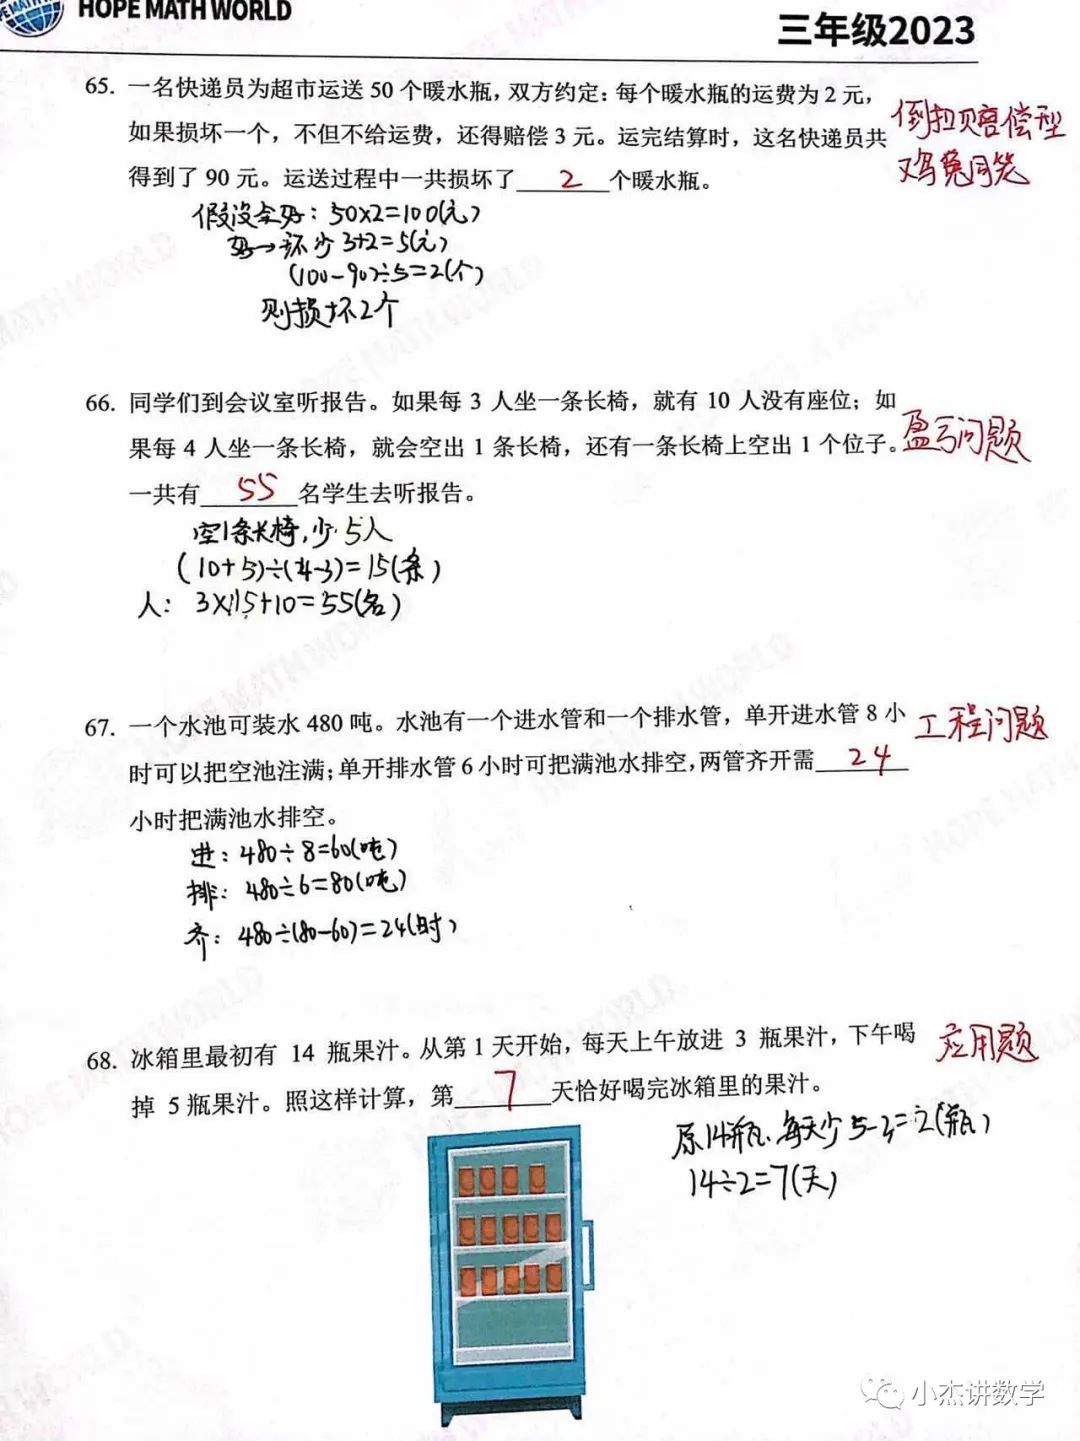 HOPE MATH WORLD
三年级2023
65. 一名快递员为超市运送 50 个暖水瓶，双方约定：每个暖水瓶的运费为 2 元，
如果损坏一个，不但不给运费，还得赔偿 3 元。运完结算时，这名快递员共
得到了 90 元。运送过程中一共损坏了 2 个暖水瓶。
倒扣赔偿型
鸡兔同笼
假设全好：50×2=100(元)
好→坏 少 3+2=5(元)
(100-90)÷5=2(个)
则损坏2个
66. 同学们到会议室听报告。如果每 3 人坐一条长椅，就有 10 人没有座位；如
果每 4 人坐一条长椅，就会空出 1 条长椅，还有一条长椅上空出 1 个位子。
盈亏问题
一共有 55 名学生去听报告。
空1条长椅，少 5人
(10+5)÷(4-3)=15(条)
人：3×15+10=55(名)
67. 一个水池可装水 480 吨。水池有一个进水管和一个排水管，单开进水管 8 小
工程问题
时可以把空池注满；单开排水管 6 小时可把满池水排空，两管齐开需 24
小时把满池水排空。
进：480÷8=60(吨)
排：480÷6=80(吨)
齐：480÷(80-60)=24(时)
68. 冰箱里最初有 14 瓶果汁。从第 1 天开始，每天上午放进 3 瓶果汁，下午喝
应用题
掉 5 瓶果汁。照这样计算，第 7 天恰好喝完冰箱里的果汁。
原14瓶、每天少 5-3=2(瓶)
14÷2=7(天)
小杰讲数学